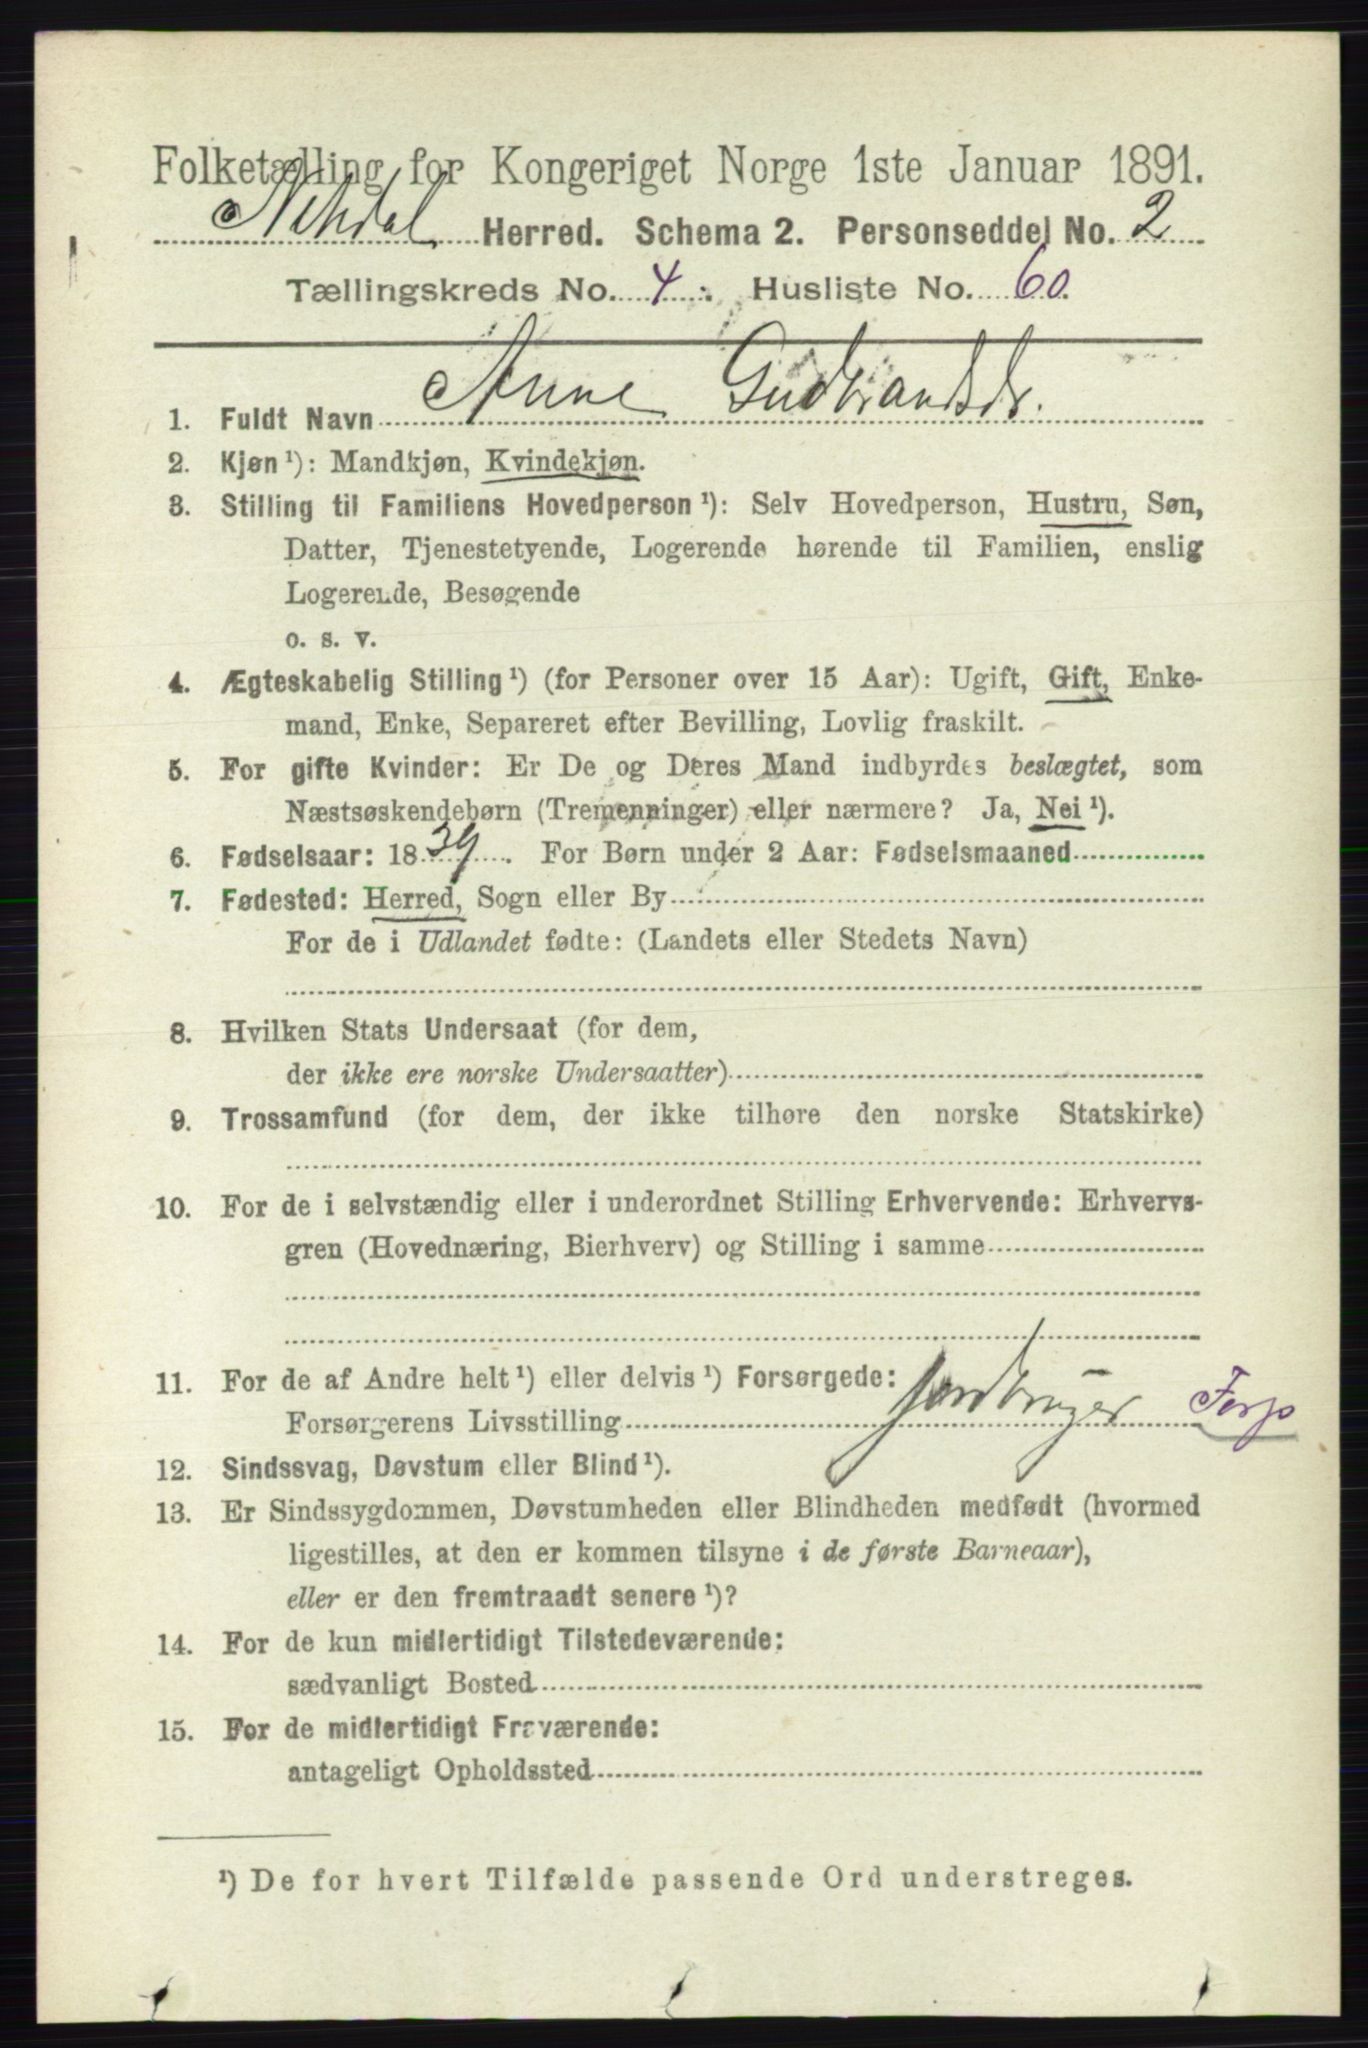 Folketælling for Kongeriget Norge 1ste Januar 1891.
Herred. Schema 2. Personseddel No. 2
Tællingskreds No. 4. Husliste No. 60.
1. Fuldt Navn Anne Gudbrandsdr.
2. Kjøn ¹): Mandkjøn, Kvindekjøn.
3. Stilling til Familiens Hovedperson ¹): Selv Hovedperson, Hustru, Søn,
Datter, Tjenestetyende, Logerende hørende til Familien, enslig
Logerende, Besøgende
o. s. v.
4. Ægteskabelig Stilling ¹) (for Personer over 15 Aar): Ugift, Gift, Enke-
mand, Enke, Separeret efter Bevilling, Lovlig fraskilt.
5. For gifte Kvinder: Er De og Deres Mand indbyrdes beslægtet, som
Næstsøskendebørn (Tremenninger) eller nærmere? Ja, Nei ¹).
6. Fødselsaar: 1839. For Børn under 2 Aar: Fødselsmaaned
7. Fødested: Herred, Sogn eller By
For de i Udlandet fødte: (Landets eller Stedets Navn)
8. Hvilken Stats Undersaat (for dem,
der ikke ere norske Undersaatter)
9. Trossamfund (for dem, der ikke tilhøre den norske Statskirke)
10. For de i selvstændig eller i underordnet Stilling Erhvervende: Erhvervs-
gren (Hovednæring, Bierhverv) og Stilling i samme
11. For de af Andre helt ¹) eller delvis ¹) Forsørgede:
Forsørgerens Livsstilling Jordbruger Forsp
12. Sindssvag, Døvstum eller Blind ¹).
13. Er Sindssygdommen, Døvstumheden eller Blindheden medfødt (hvormed
ligestilles, at den er kommen tilsyne i de første Barneaar),
eller er den fremtraadt senere ¹)?
14. For de kun midlertidigt Tilstedeværende:
sædvanligt Bosted
15. For de midlertidigt Fraværende:
antageligt Opholdssted
¹) De for hvert Tilfælde passende Ord understreges.